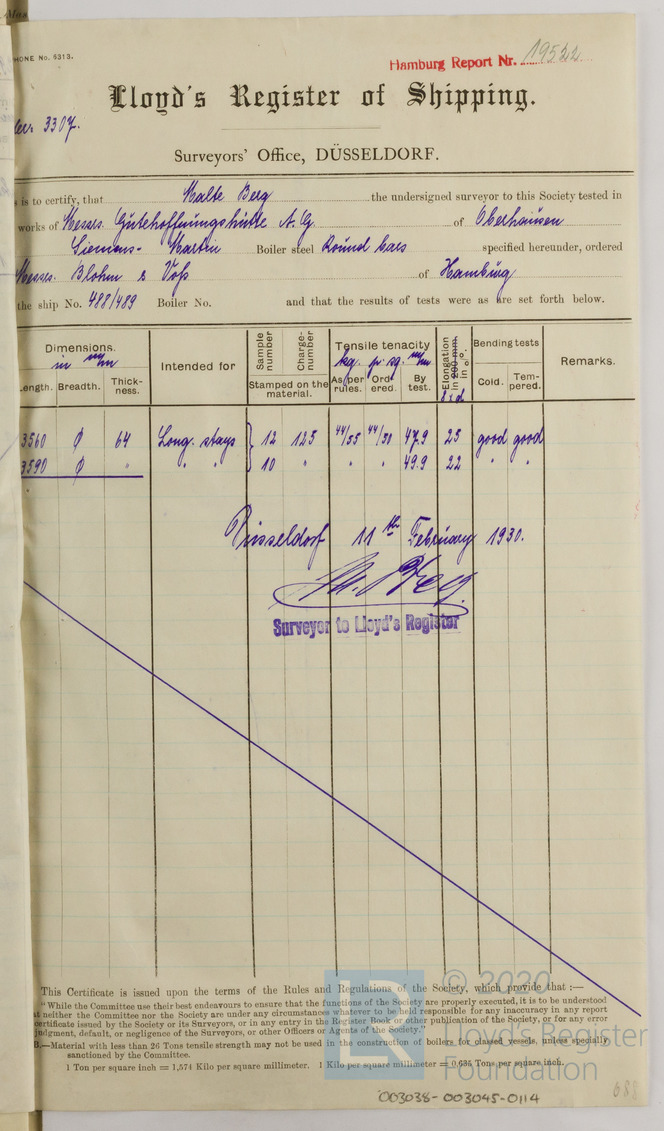 HONE No. 6313.
Hamburg Report Nr. 19522
Lloyd's Register of Shipping.
3307.
Surveyors' Office, DÜSSELDORF.
s is to certify, that Malte Berg the undersigned surveyor to this Society tested in
works of Messrs. Gutehoffnungshütte A.G. of Oberhausen
Siemens-Martin Boiler steel Round bars specified hereunder, ordered
Messrs. Blohm & Voß of Hamburg
the ship No. 488/489 Boiler No. and that the results of tests were as are set forth below.
Dimensions. in m/m
ength. Breadth. Thick-ness.
Intended for
Sample number
Charge-number
Stamped on the material.
Tensile tenacity
kg. p. sq. m/m
As per rules. Ord ered. By test.
Elongation in 200 mm. in %.
8 x d
Bending tests
Cold. Tem-pered.
Remarks.
3560 ϕ 64 Long. stays } 12 125 44/55 44/50 47.9 25 good good
3590 ϕ " " " } 10 " " " 49.9 22 " "
Düsseldorf 11th February 1930.
Surveyor to Lloyd's Register
This Certificate is issued upon the terms of the Rules and Regulations of the Society, which provide that :—
"While the Committee use their best endeavours to ensure that the functions of the Society are properly executed, it is to be understood
t neither the Committee nor the Society are under any circumstances whatever to be held responsible for any inaccuracy in any report
certificate issued by the Society or its Surveyors, or in any entry in the Register Book or other publication of the Society, or for any error
judgment, default, or negligence of the Surveyors, or other Officers or Agents of the Society."
B.—Material with less than 26 Tons tensile strength may not be used in the construction of boilers for classed vessels, unless specially
sanctioned by the Committee.
1 Ton per square inch = 1,574 Kilo per square millimeter. 1 Kilo per square millimeter = 0.635 Tons per square inch.
© 2020
Lloyd's Register
Foundation
LR
003038-003045-0114
688